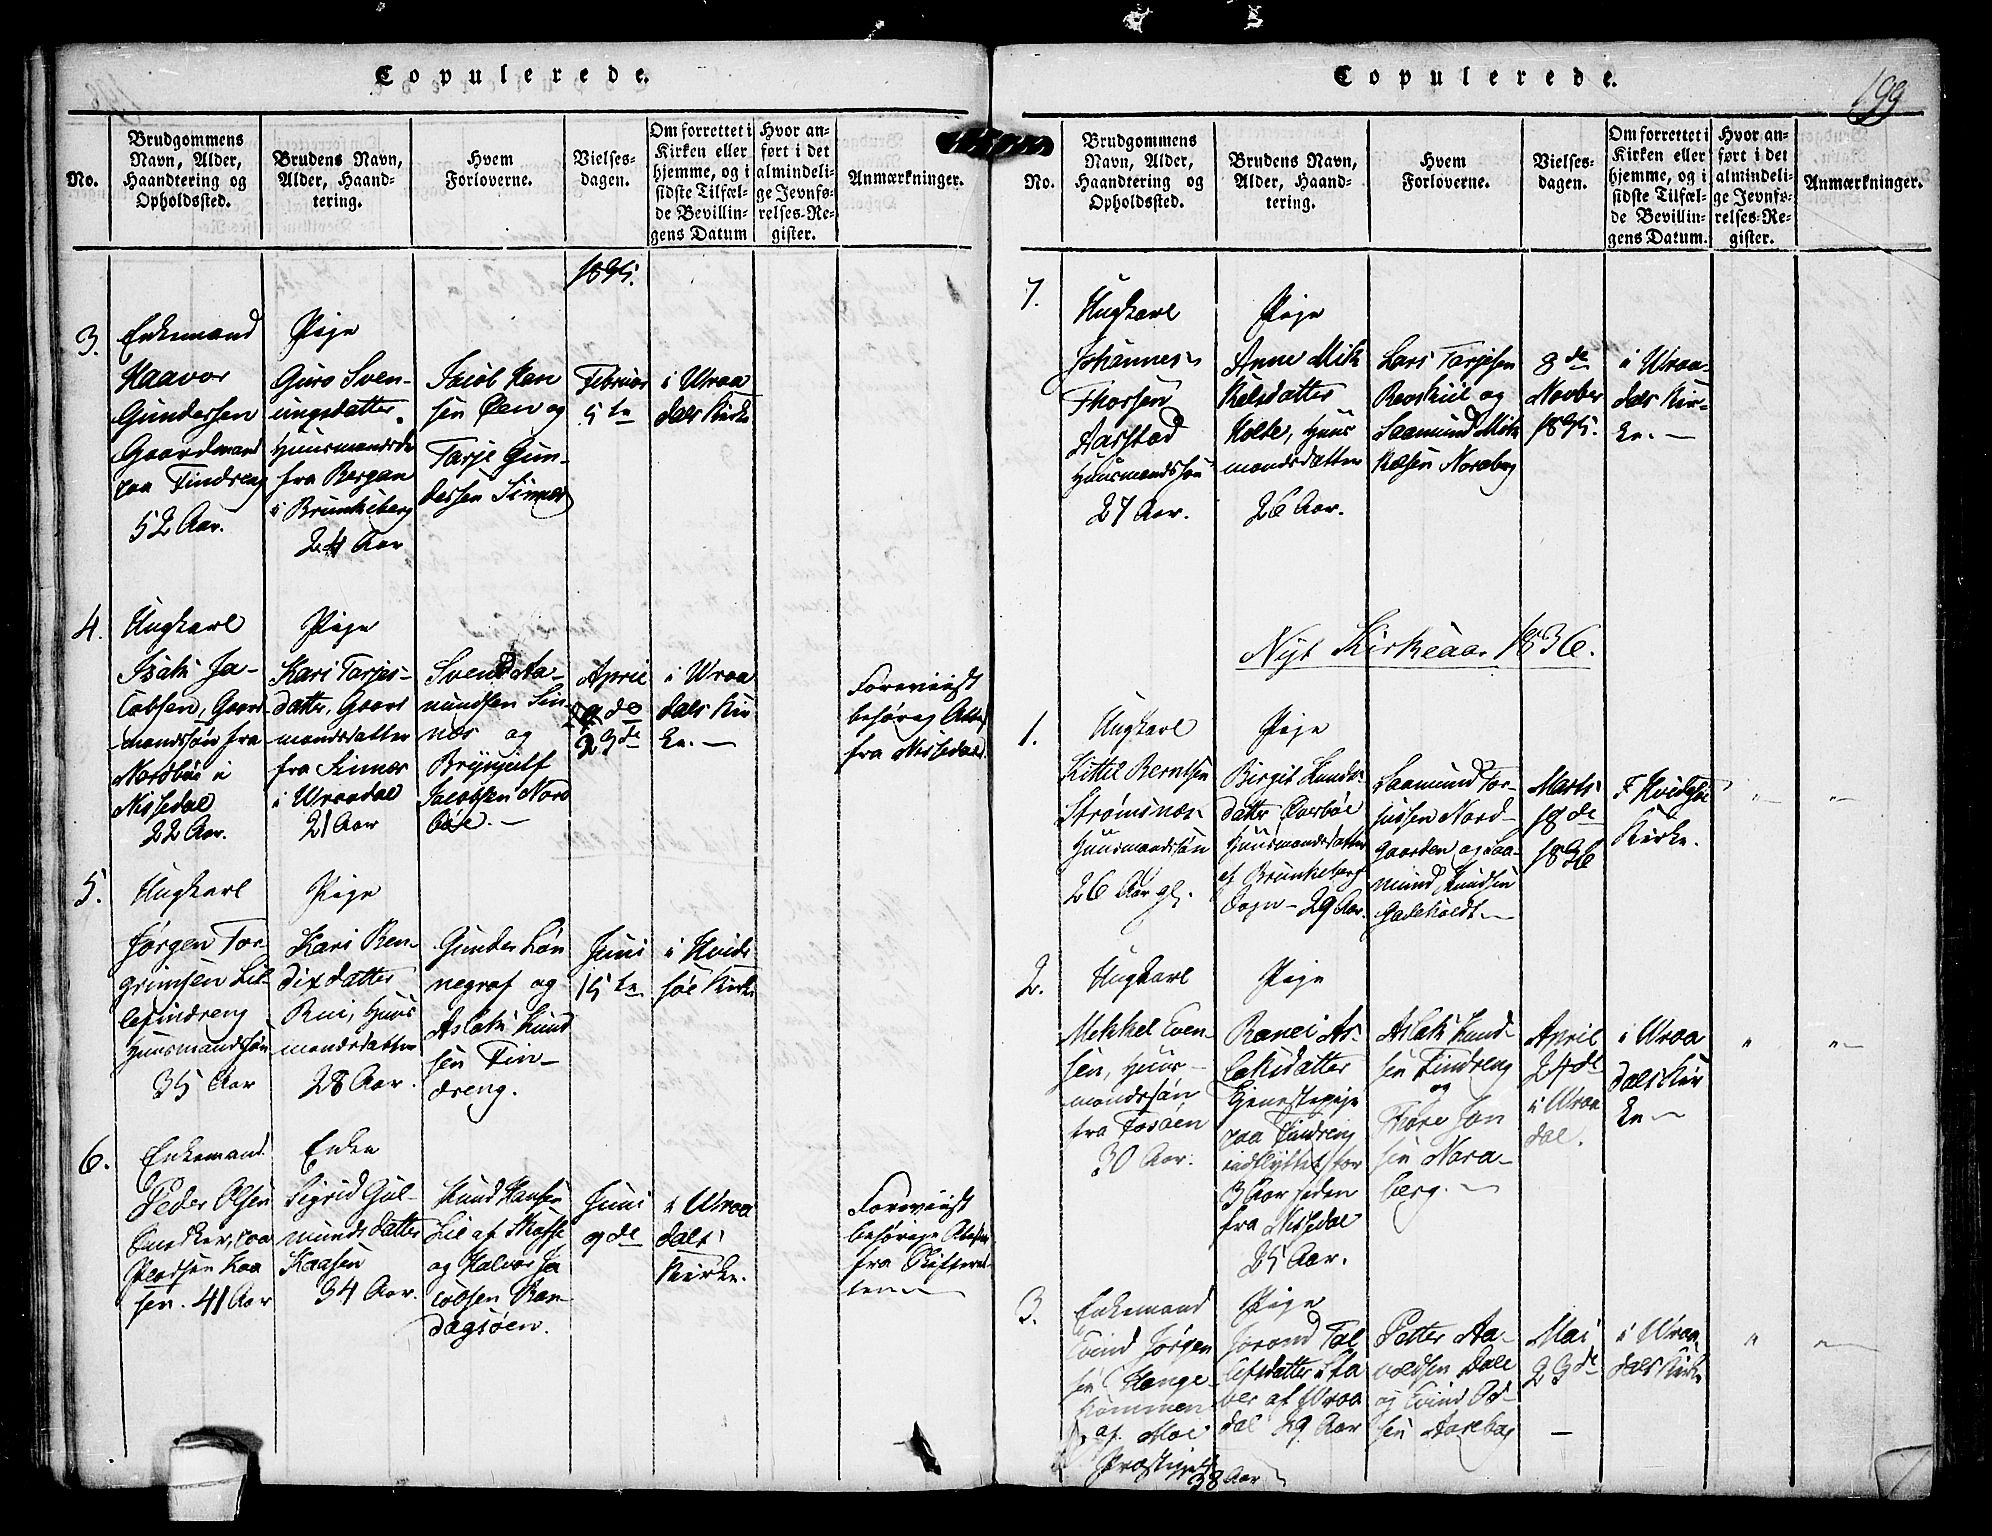 Copulerede.
No.
Brudgommens Navn, Alder, Haandtering og Opholdssted.
Brudens Navn, Alder, Haandtering.
Hvem Forloverne.
Vielsesdagen.
Om forrettet i Kirken eller hjemme, og i sidste Tilfælde Bevillingens Datum
Hvor anført i det almindelige Jevnførelses-Register.
Anmærkninger.
1835.
3.
Enkemand
Haavor
Gundersen
Gaardmand
paa Tindreng
52 Aar.
Pige
Guro Sven-
ungsdatter
Huusmandsd.
fra Bergan
i Brunkeberg
24 Aar
Jacob Han
sen Øen og
Tarje Gun-
dersen Sinnes
Februar
5te
i Wraa
dals Kirke
4.
Ungkarl
Isak Ja-
cobsen, Gaard
mandssøn fra
Nordbøe i
Nissedal
22 Aar.
Pige
Kari Tarjes-
datter, Gaard
mandsdatter
fra Sinnes
i Wraadal
21 Aar
Svend Aa-
mundsen Sin-
næs og
Brynjulf
Jacobsen Nord
bøe.
April
23de
i Wraa
dals Kir
ke.
Foreviist
behørig Attest
fra Nissedal
5.
Ungkarl
Jørgen Tor-
grimsen Lil-
letindreng
Huusmandssøn
35 Aar
Pige
Kari Ben-
dixdatter
Rui, Huus
mandsdatter
28 Aar.
Gunder Løn
negraf og
Aslak Knud
sen Tin-
dreng.
Juni
15te
i Hvide
søe Kirke
6.
Enkemand
Peder Olsen
sen. 41 Aar
Enke
Sigrid Gul-
mundsdatter
Kaasen
34 Aar.
Knud Hansen
Lie af Skafse
og Halvor Ja
cobsen Ran-
dagsøen.
Juni
9de
i Wraa
dals
Kirke.
Foreviist
behørige Attester
fra Skifteret-
ten
Copulerede.
199
No.
Brudgommens Navn, Alder, Haandtering og Opholdssted.
Brudens Navn, Alder, Haandtering.
Hvem Forloverne.
Vielsesdagen.
Om forrettet i Kirken eller hjemme, og i sidste Tilfælde Bevillingens Datum.
Hvor anført i det almindelige Jevnførelses-Register.
Anmærkninger.
7.
Ungkarl
Johannes
Thorsen
Aasstad
Huusmandssøn
27 Aar.
Pige
Anne Mik
kelsdatter
Holte, Huus
mandsdatter
26 Aar.
Lars Tarjesen
Revskiil og
Saamund Mik
kelsen Noraberg
8de
Novber
1835.
i Wraa-
dals Kir-
ke.
Nyt Kirkeaar 1836.
1.
Ungkarl
Kittil Berntsen
Strømsnæs
Huusmandssøn
26 Aar gl.
Pige
Birgit Knuds
datter Øverbøe
Huusmandsdatter
af Brunkeberg
Sogn 29 Aar.
Saamund Tor-
jussen Nord-
gaarden og Saa-
mund Knudsen
Gadeholdt
Marts
18de
1836
i Hvidesøe
Kirke.
2.
Ungkarl
Mekkel Even-
sen, Huus-
mandssøn
fra Fosøen
30 Aar.
Pige
Ranei As-
laksdatter
tjenestepige
paa Tindreng
indflyttet for
3 Aar siden
fra Nissedal
25 Aar.
Aslak Knud-
sen Tindreng
og
Thore Jon
sen Nora-
berg.
April
24de
i Wraa
dal.
i Wraa
dals Kir
ke
3.
Enkemand
Eivind Jørgen
sen Hange-
kommen
af Moe
Præstegjeld
38 Aar
Pige
Jorond Tal
lefsdatter Sta
ber af Wraa
dal 29 Aar
Petter Aa-
voldsen Dale
og Eivind Ol-
sen Aasebog
Mai
23de
i Wraa
dals Kirke